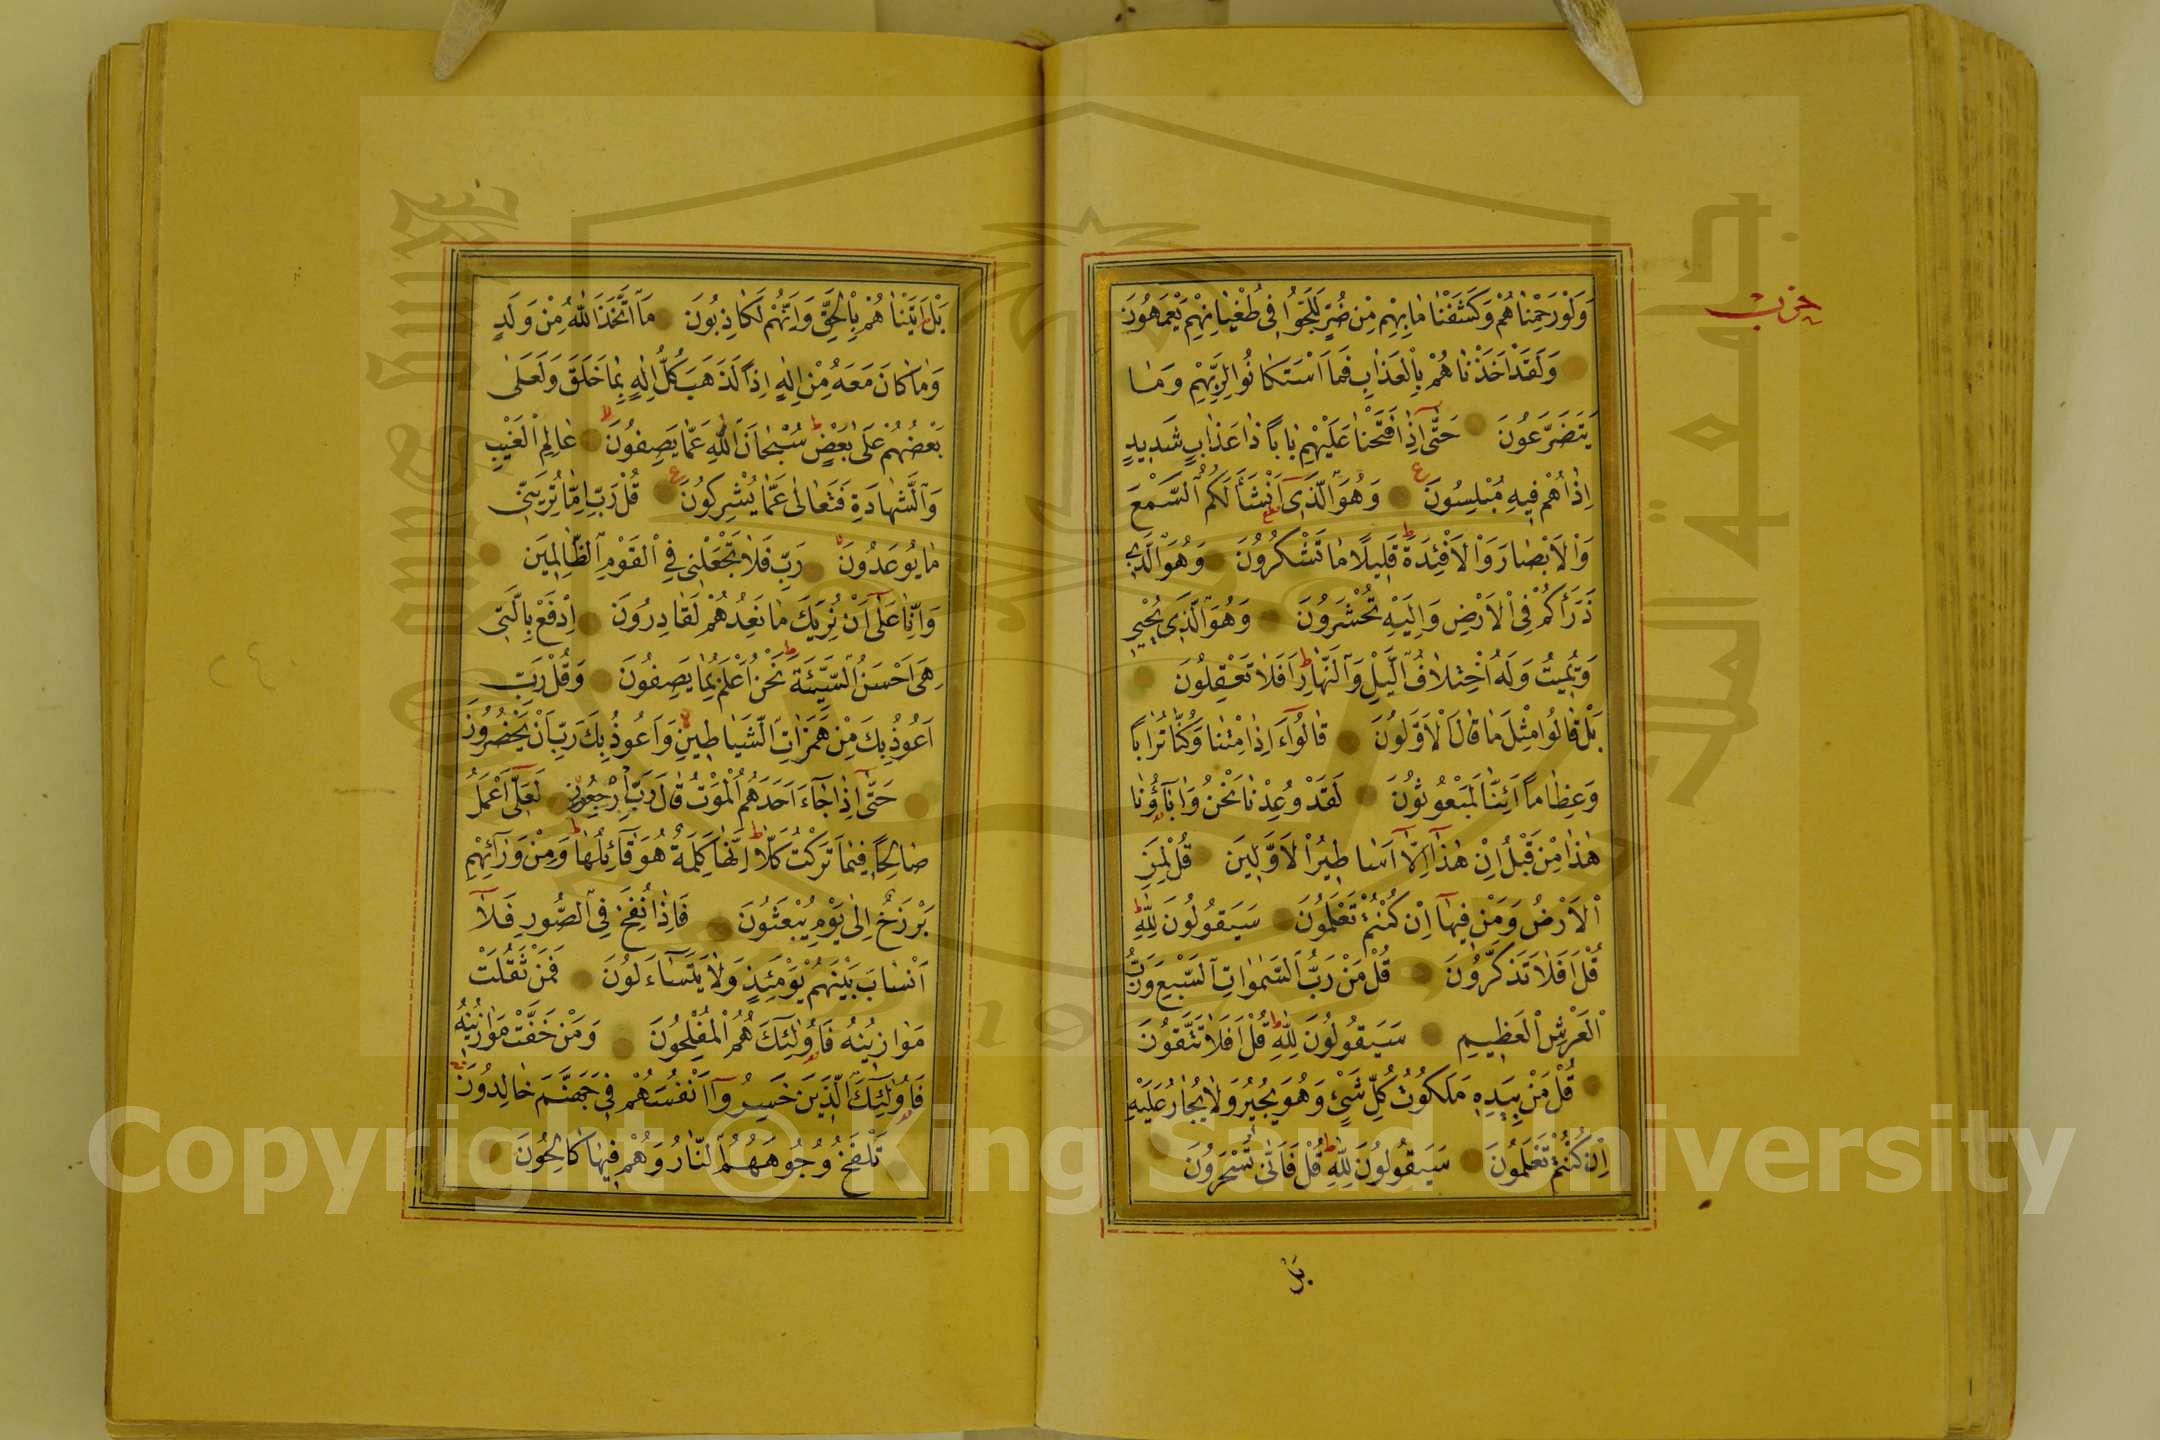 وَلَوْ رَحِمْنَاهُمْ وَكَشَفْنَا مَا بِهِمْ مِنْ ضُرٍّ لَلَجُّوا فِي طُغْيَانِهِمْ يَعْمَهُونَ
وَلَقَدْ اَخَذْنَاهُمْ بِالْعَذَابِ فَمَا اسْتَكَانُوا لِرَبِّهِمْ وَمَا
يَتَضَرَّعُونَ حَتّٰى اِذَا فَتَحْنَا عَلَيْهِمْ بَابًا ذَا عَذَابٍ شَدِيدٍ
اِذَا هُمْ فِيهِ مُبْلِسُونَ وَهُوَ الَّذِى اَنْشَأَ لَكُمُ السَّمْعَ
وَالْاَبْصَارَ وَالْاَفْئِدَةَ قَلِيلًا مَا تَشْكُرُونَ وَهُوَ الَّذِى
ذَرَأَكُمْ فِى الْاَرْضِ وَاِلَيْهِ تُحْشَرُونَ وَهُوَ الَّذِى يُحْيِى
وَيُمِيتُ وَلَهُ اخْتِلَافُ الَّيْلِ وَالنَّهَارِ اَفَلَا تَعْقِلُونَ
بَلْ قَالُوا مِثْلَ مَا قَالَ الْاَوَّلُونَ قَالُوا ءَاِذَا مِتْنَا وَكُنَّا تُرَابًا
وَعِظَامًا اَئِنَّا لَمَبْعُوثُونَ لَقَدْ وُعِدْنَا نَحْنُ وَاٰبَاؤُنَا
هٰذَا مِنْ قَبْلُ اِنْ هٰذَا اِلَّا اَسَاطِيرُ الْاَوَّلِينَ قُلْ لِمَنِ
الْاَرْضُ وَمَنْ فِيهَا اِنْ كُنْتُمْ تَعْلَمُونَ سَيَقُولُونَ لِلّٰهِ
قُلْ اَفَلَا تَذَكَّرُونَ قُلْ مَنْ رَبُّ السَّمٰوَاتِ السَّبْعِ وَرَبُّ
الْعَرْشِ الْعَظِيمِ سَيَقُولُونَ لِلّٰهِ قُلْ اَفَلَا تَتَّقُونَ
قُلْ مَنْ بِيَدِهِ مَلَكُوتُ كُلِّ شَىْءٍ وَهُوَ يُجِيرُ وَلَا يُجَارُ عَلَيْهِ
اِنْ كُنْتُمْ تَعْلَمُونَ سَيَقُولُونَ لِلّٰهِ قُلْ فَاَنّٰى تُسْحَرُونَ
بَلْ
حزب
بَلْ اَتَيْنَاهُمْ بِالْحَقِّ وَاِنَّهُمْ لَكَاذِبُونَ مَا اتَّخَذَ اللّٰهُ مِنْ وَلَدٍ
وَمَا كَانَ مَعَهُ مِنْ اِلٰهٍ اِذًا لَذَهَبَ كُلُّ اِلٰهٍ بِمَا خَلَقَ وَلَعَلٰى
بَعْضُهُمْ عَلٰى بَعْضٍ سُبْحَانَ اللّٰهِ عَمَّا يَصِفُونَ عَالِمِ الْغَيْبِ
وَالشَّهَادَةِ فَتَعَالٰى عَمَّا يُشْرِكُونَ قُلْ رَبِّ اِمَّا تُرِيَنِّى
مَا يُوعَدُونَ رَبِّ فَلَا تَجْعَلْنِى فِى الْقَوْمِ الظَّالِمِينَ
وَاِنَّا عَلٰى اَنْ نُرِيَكَ مَا نَعِدُهُمْ لَقَادِرُونَ اِدْفَعْ بِالَّتِى
هِىَ اَحْسَنُ السَّيِّئَةَ نَحْنُ اَعْلَمُ بِمَا يَصِفُونَ وَقُلْ رَبِّ
اَعُوذُ بِكَ مِنْ هَمَزَاتِ الشَّيَاطِينِ وَاَعُوذُ بِكَ رَبِّ اَنْ يَحْضُرُونِ
حَتّٰى اِذَا جَاءَ اَحَدَهُمُ الْمَوْتُ قَالَ رَبِّ ارْجِعُونِ لَعَلِّى اَعْمَلُ
صَالِحًا فِيمَا تَرَكْتُ كَلَّا اِنَّهَا كَلِمَةٌ هُوَ قَائِلُهَا وَمِنْ وَرَائِهِمْ
بَرْزَخٌ اِلٰى يَوْمِ يُبْعَثُونَ فَاِذَا نُفِخَ فِى الصُّورِ فَلَا
اَنْسَابَ بَيْنَهُمْ يَوْمَئِذٍ وَلَا يَتَسَاءَلُونَ فَمَنْ ثَقُلَتْ
مَوَازِينُهُ فَاُولٰئِكَ هُمُ الْمُفْلِحُونَ وَمَنْ خَفَّتْ مَوَازِينُهُ
فَاُولٰئِكَ الَّذِينَ خَسِرُوا اَنْفُسَهُمْ فِى جَهَنَّمَ خَالِدُونَ
تَلْفَحُ وُجُوهَهُمُ النَّارُ وَهُمْ فِيهَا كَالِحُونَ
Copyright © King Saud University